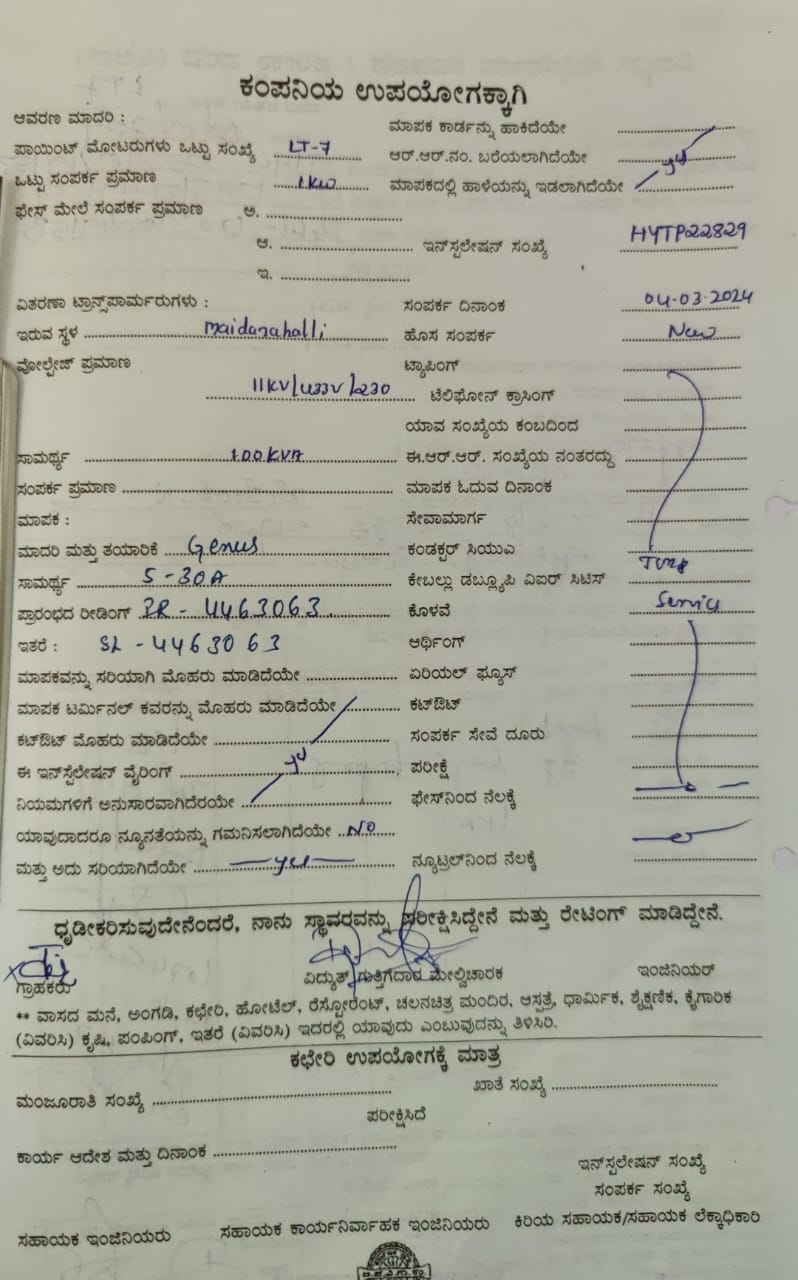 ಕಂಪನಿಯ ಉಪಯೋಗಕ್ಕಾಗಿ
ಆವರಣ ಮಾದರಿ : ಮಾಪಕ ಕಾರ್ಡನ್ನು ಹಾಕಿದೆಯೇ
ಪಾಯಿಂಟ್ ಮೋಟರುಗಳು ಒಟ್ಟು ಸಂಖ್ಯೆ LT-7 ಆರ್.ಆರ್.ನಂ. ಬರೆಯಲಾಗಿದೆಯೇ
ಒಟ್ಟು ಸಂಪರ್ಕ ಪ್ರಮಾಣ 1KW ಮಾಪಕದಲ್ಲಿ ಹಾಳೆಯನ್ನು ಇಡಲಾಗಿದೆಯೇ
ಫೇಸ್ ಮೇಲೆ ಸಂಪರ್ಕ ಪ್ರಮಾಣ ಅ.
ಆ. ಇನ್‌ಸ್ಟಲೇಷನ್ ಸಂಖ್ಯೆ HYTP22829
ಇ.
ವಿತರಣಾ ಟ್ರಾನ್ಸ್‌ಫಾರ್ಮರುಗಳು : ಸಂಪರ್ಕ ದಿನಾಂಕ 04-03-2024
ಇರುವ ಸ್ಥಳ Maidanahalli ಹೊಸ ಸಂಪರ್ಕ New
ವೋಲ್ಟೇಜ್ ಪ್ರಮಾಣ ಟ್ಯಾಪಿಂಗ್
11KV/433V/230 ಟೆಲಿಫೋನ್ ಕ್ರಾಸಿಂಗ್
ಯಾವ ಸಂಖ್ಯೆಯ ಕಂಬದಿಂದ
ಸಾಮರ್ಥ್ಯ 100KVA ಈ.ಆರ್.ಆರ್. ಸಂಖ್ಯೆಯ ನಂತರದ್ದು
ಸಂಪರ್ಕ ಪ್ರಮಾಣ ಮಾಪಕ ಓದುವ ದಿನಾಂಕ
ಮಾಪಕ : ಸೇವಾಮಾರ್ಗ
ಮಾದರಿ ಮತ್ತು ತಯಾರಿಕೆ Genus ಕಂಡಕ್ಟರ್ ಸಿಯುಎ
ಸಾಮರ್ಥ್ಯ 5-30A ಕೇಬಲ್ಲು ಡಬ್ಲ್ಯೂಪಿ ವಿಐರ್ ಸಿಟಿಸ್
ಪ್ರಾರಂಭದ ರೀಡಿಂಗ್ IR-4463063 ಕೊಳವೆ Service
ಇತರೆ : SL-4463063 ಆರ್ಥಿಂಗ್
ಮಾಪಕವನ್ನು ಸರಿಯಾಗಿ ಮೊಹರು ಮಾಡಿದೆಯೇ ಏರಿಯಲ್ ಫ್ಯೂಸ್
ಮಾಪಕ ಟರ್ಮಿನಲ್ ಕವರನ್ನು ಮೊಹರು ಮಾಡಿದೆಯೇ ಕಟ್‌ಔಟ್
ಕಟ್‌ಔಟ್ ಮೊಹರು ಮಾಡಿದೆಯೇ ಸಂಪರ್ಕ ಸೇವೆ ದೂರು
ಈ ಇನ್‌ಸ್ಟೆಲೇಷನ್ ವೈರಿಂಗ್ ಪರೀಕ್ಷೆ
ನಿಯಮಗಳಿಗೆ ಅನುಸಾರವಾಗಿದೆರಯೇ ಫೇಸ್‌ನಿಂದ ನೆಲಕ್ಕೆ
ಯಾವುದಾದರೂ ನ್ಯೂನತೆಯನ್ನು ಗಮನಿಸಲಾಗಿದೆಯೇ NO
ಮತ್ತು ಅದು ಸರಿಯಾಗಿದೆಯೇ yes ನ್ಯೂಟ್ರಲ್‌ನಿಂದ ನೆಲಕ್ಕೆ
ಧೃಡೀಕರಿಸುವುದೇನೆಂದರೆ, ನಾನು ಸ್ಥಾವರವನ್ನು ಪರೀಕ್ಷಿಸಿದ್ದೇನೆ ಮತ್ತು ರೇಟಿಂಗ್ ಮಾಡಿದ್ದೇನೆ.
ಗ್ರಾಹಕರು ವಿದ್ಯುತ್ ಗುತ್ತಿಗೆದಾರ ಮೇಲ್ವಿಚಾರಕ ಇಂಜಿನಿಯರ್
** ವಾಸದ ಮನೆ, ಅಂಗಡಿ, ಕಛೇರಿ, ಹೋಟೆಲ್, ರೆಸ್ಟೋರೆಂಟ್, ಚಲನಚಿತ್ರ ಮಂದಿರ, ಆಸ್ಪತ್ರೆ, ಧಾರ್ಮಿಕ, ಶೈಕ್ಷಣಿಕ, ಕೈಗಾರಿಕ
(ವಿವರಿಸಿ) ಕೃಷಿ, ಪಂಪಿಂಗ್, ಇತರೆ (ವಿವರಿಸಿ) ಇದರಲ್ಲಿ ಯಾವುದು ಎಂಬುವುದನ್ನು ತಿಳಿಸಿರಿ.
ಕಛೇರಿ ಉಪಯೋಗಕ್ಕೆ ಮಾತ್ರ
ಮಂಜೂರಾತಿ ಸಂಖ್ಯೆ ಖಾತೆ ಸಂಖ್ಯೆ
ಪರೀಕ್ಷಿಸಿದೆ
ಕಾರ್ಯ ಆದೇಶ ಮತ್ತು ದಿನಾಂಕ
ಇನ್‌ಸ್ಟಲೇಷನ್ ಸಂಖ್ಯೆ
ಸಂಪರ್ಕ ಸಂಖ್ಯೆ
ಸಹಾಯಕ ಇಂಜಿನಿಯರು ಸಹಾಯಕ ಕಾರ್ಯನಿರ್ವಾಹಕ ಇಂಜಿನಿಯರು ಕಿರಿಯ ಸಹಾಯಕ/ಸಹಾಯಕ ಲೆಕ್ಕಾಧಿಕಾರಿ